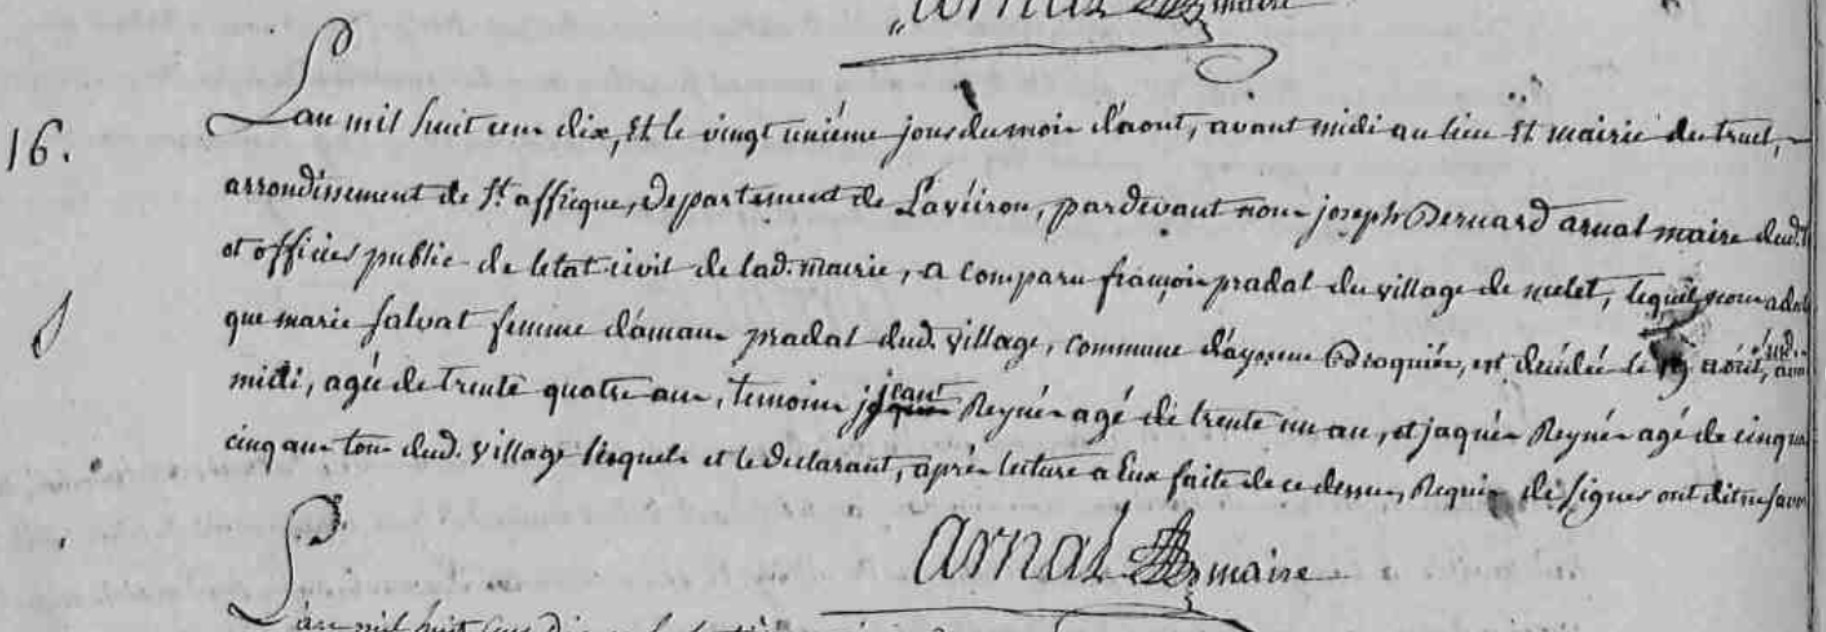 arnal maire
16.
Lan mil huit cens dix, Et le vingt unième jour du mois d'aout, avant midi au lieu Et mairie du truel,
arrondissement de St affrique, Departement de Laveiron, pardevant nous joseph Bernard arnal maire dud.t
et officier public de letat civil de lad. mairie, a comparu françois pradal du village de melet, lequel nous a decl
que marie salvat femme d'amans pradal dud. village, commune d'ayssene Broquiés, est décédée le 19 août, aud.
midi, agée de trente quatre ans, temoins jean Reynés agé de trente un an, et jaques Reynés agé de cinqua
cinq ans tous dud. village lesquels et le declarant, après lecture a Eux faite de ce dessus, Requis de signer ont dit ne savoir
arnal maire
Lan mil huit cens dix